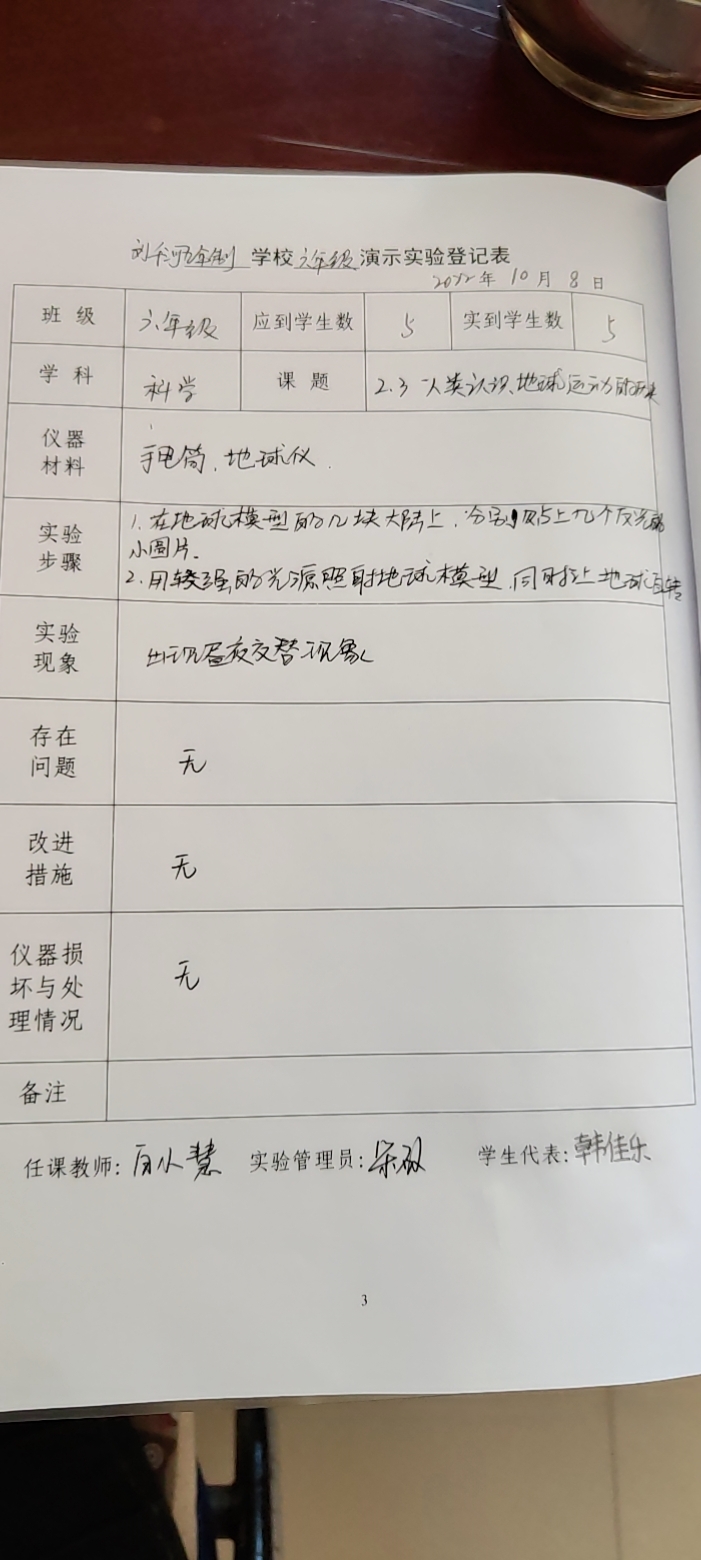 学校六年级演示实验登记表
2022年10月8日
班级 六年级 应到学生数 5 实到学生数 5
学科 科学 课题 2.3 人类认识地球运动的历史
仪器材料 手电筒、地球仪.
实验步骤 1.在地球模型的几块大陆上,分别贴上几个反光的
小图片.
2.用较强的光源照射地球模型,同时让地球自转
实验现象 出现昼夜交替现象
存在问题 无
改进措施 无
仪器损坏与处理情况 无
备注
任课教师: 小慧 实验管理员: 学生代表:韩佳乐
3